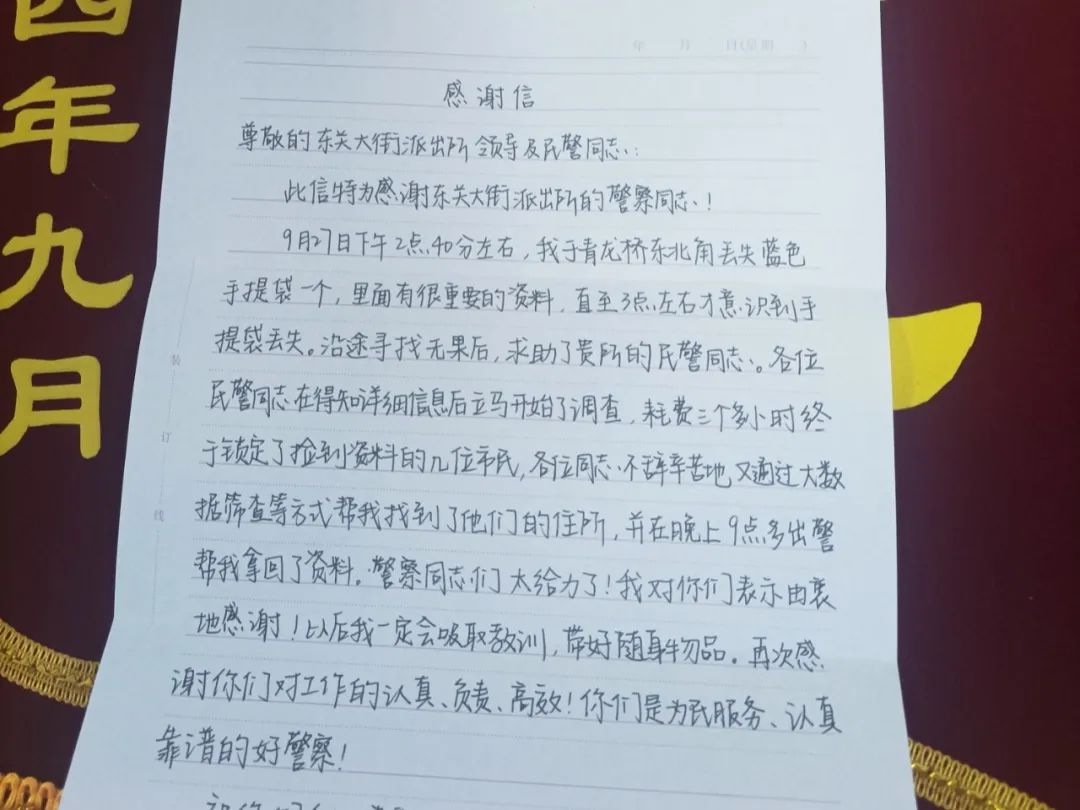 四年九月
年 月 日(星期 )
感谢信
尊敬的东关大街派出所领导及民警同志:
此信特为感谢东关大街派出所的警察同志!
9月27日下午2点40分左右,我于青龙桥东北角丢失蓝色
手提袋一个,里面有很重要的资料,直至3点左右才意识到手
提袋丢失。沿途寻找无果后,求助了贵所的民警同志。各位
民警同志在得知详细信息后立马开始了调查,耗费三个多小时终
于锁定了捡到资料的几位市民,各位同志不辞辛苦地又通过大数
据筛查等方式帮我找到了他们的住所,并在晚上9点多出警
帮我拿回了资料。警察同志们太给力了!我对你们表示由衷
地感谢!以后我一定会吸取教训,带好随身物品。再次感
谢你们对工作的认真、负责、高效!你们是为民服务、认真
靠谱的好警察!
装
订
线